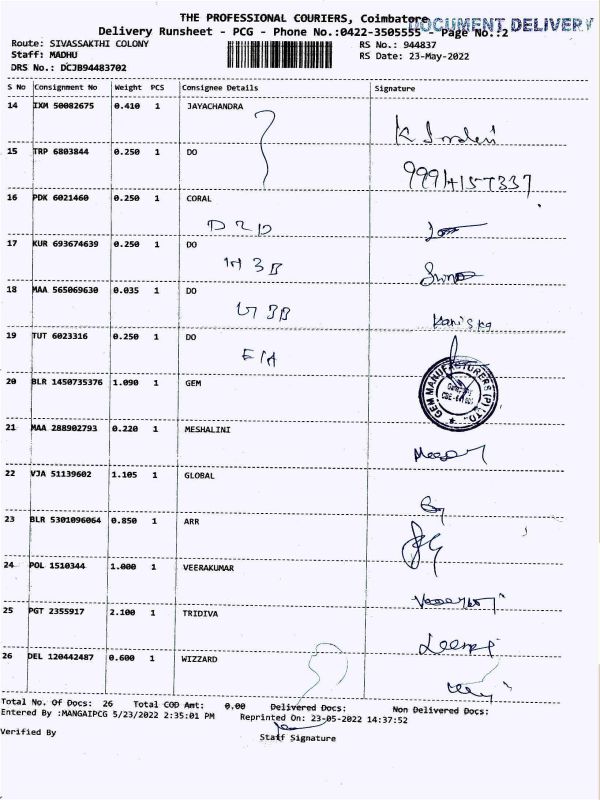 THE PROFESSIONAL COURIERS, Coimbatore
DOCUMENT DELIVERY
Delivery Runsheet - PCG - Phone No.:0422-3505555 - Page No.:2
Route: SIVASSAKTHI COLONY RS No.: 944837
Staff: MADHU RS Date: 23-May-2022
DRS No.: DCJB94483702
S No Consignment No Weight PCS Consignee Details Signature
14 IXM 50082675 0.410 1 JAYACHANDRA
15 TRP 6803844 0.250 1 DO
16 PDK 6021460 0.250 1 CORAL
D 2 D
17 KUR 693674639 0.250 1 DO
18 MAA 565069630 0.035 1 DO
19 TUT 6023316 0.250 1 DO
E1A
20 BLR 1450735376 1.090 1 GEM
GEM MANUFACTURERS (P) LTD.
21 MAA 288902793 0.220 1 MESHALINI
22 VJA 51139602 1.105 1 GLOBAL
23 BLR 5301096064 0.850 1 ARR
24 POL 1510344 1.000 1 VEERAKUMAR
25 PGT 2355917 2.100 1 TRIDIVA
26 DEL 120442487 0.600 1 WIZZARD
Total No. Of Docs: 26 Total COD Amt: 0.00 Delivered Docs: Non Delivered Docs:
Entered By :MANGAIPCG 5/23/2022 2:35:01 PM Reprinted On: 23-05-2022 14:37:52
Verified By Staff Signature